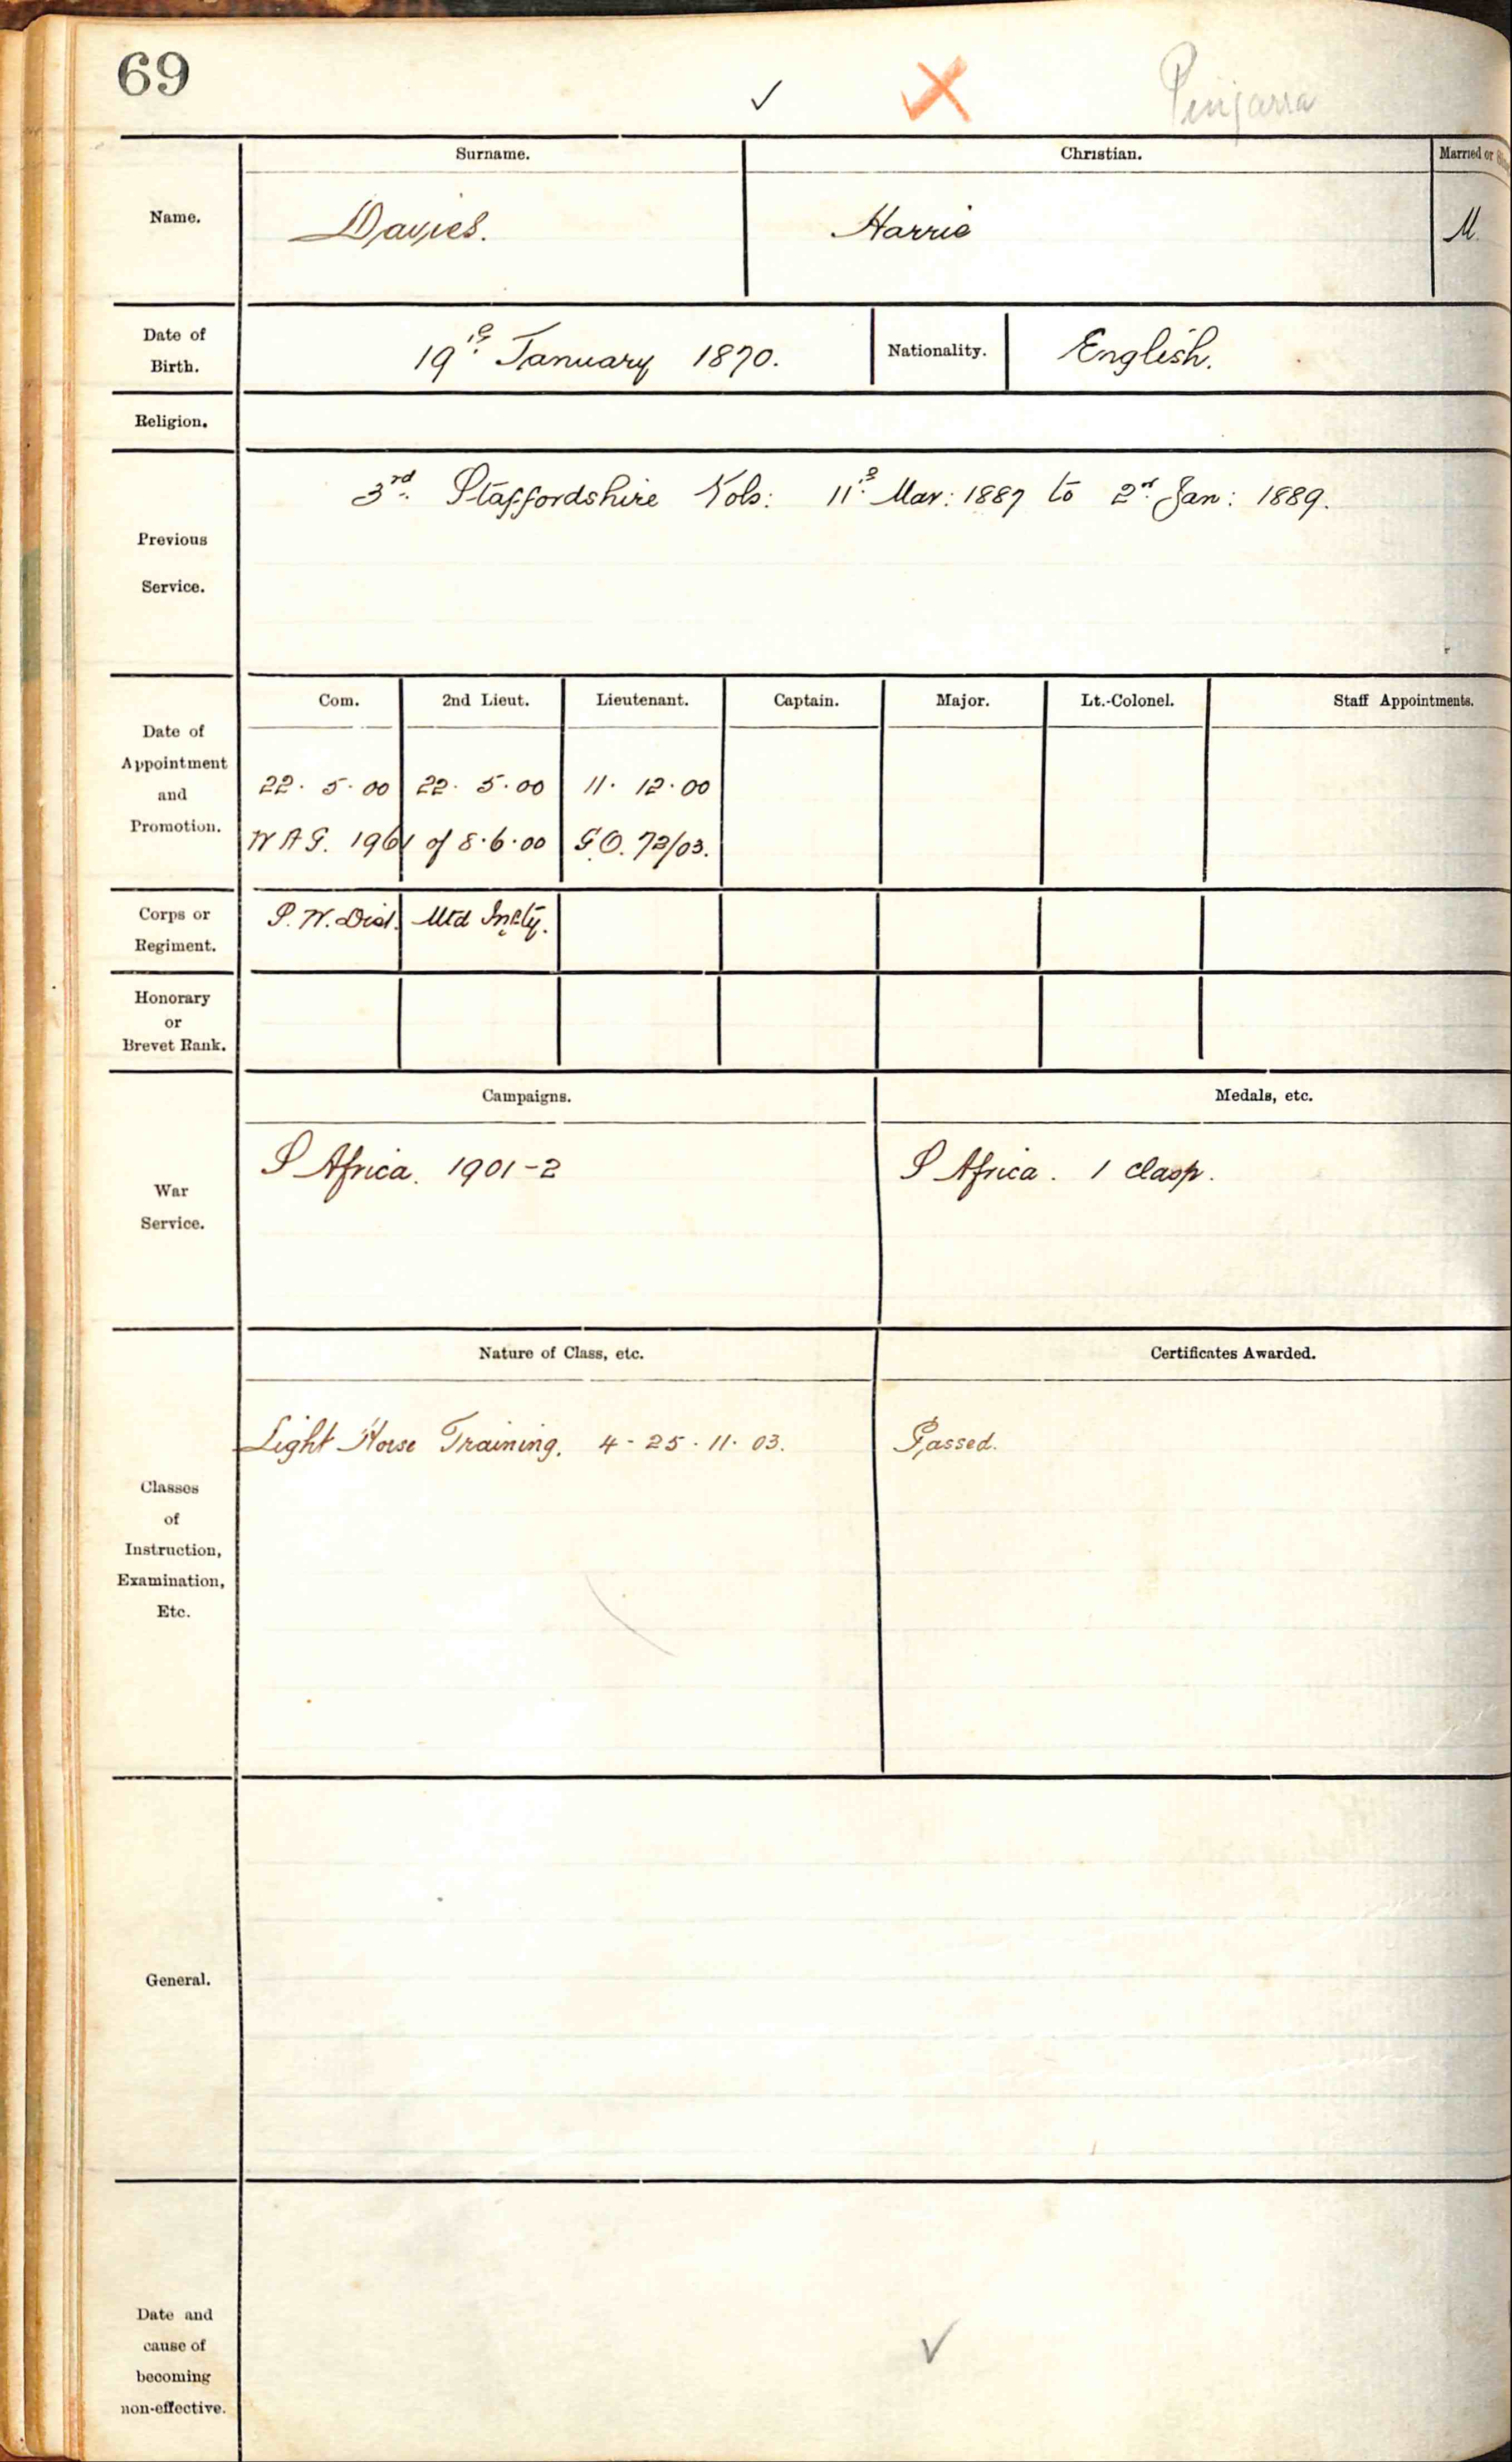 69 ✓ X Pinjarra
Surname. Christian. Married or
Name. Davies. Harrie M.
Date of
Birth. 19th January 1870. Nationality. English.
Religion.
3rd Staffordshire Vols: 11th Mar: 1887 to 2nd Jan: 1889.
Previous
Service.
Com. 2nd Lieut. Lieutenant. Captain. Major. Lt.-Colonel. Staff Appointments.
Date of
Appointment
and
Promotion.
22. 5.00 22. 5.00 11. 12.00
W A G. 1961 of 8.6.00 G.O. 73/03.
Corps or
Regiment.
S. W. Dist. Mtd Infty.
Honorary
or
Brevet Rank.
Campaigns. Medals, etc.
S Africa. 1901-2 S Africa. 1 clasp.
War
Service.
Nature of Class, etc. Certificates Awarded.
Light Horse Training. 4-25.11.03. Passed.
Classes
of
Instruction,
Examination,
Etc.
General.
Date and
cause of
becoming
non-effective.
✓